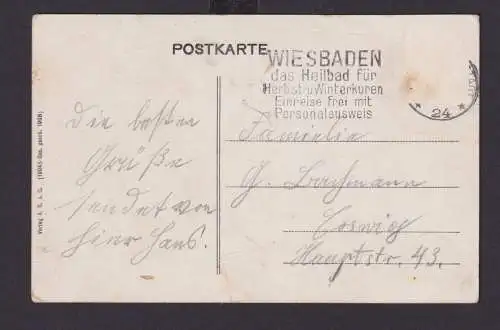 POSTKARTE
WIESBADEN
das Heilbad für
Herbst-u Winterkuren
Einreise frei mit
Personalausweis
24
die besten
Grüße
sendet von
hier Hans.
Familie
G. Bachmann
Coswig
Hauptstr. 43.